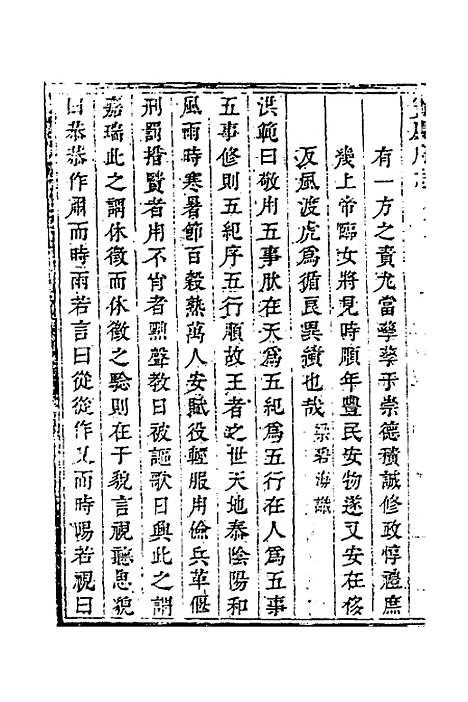 有一方之責尤當孳孳乎崇德積誠修政惇禮庶
幾上帝臨女將見時順年豐民安物遂又安在侈
反風渡虎為循良異績也哉
洪範曰敬用五事肰在天為五紀為五行在人為五事
五事修則五紀序五行順故王者之世天地泰陰陽和
風雨時寒暑節百穀熟萬人安賦役輕服用儉兵革偃
刑罰措賢者用不肖者黜聲教日被謳歌日興此之謂
嘉瑞此之謂休徵而休徵之驗則在于貌言視聽思貌
曰恭恭作肅而時雨若言曰從從作乂而時暘若視曰